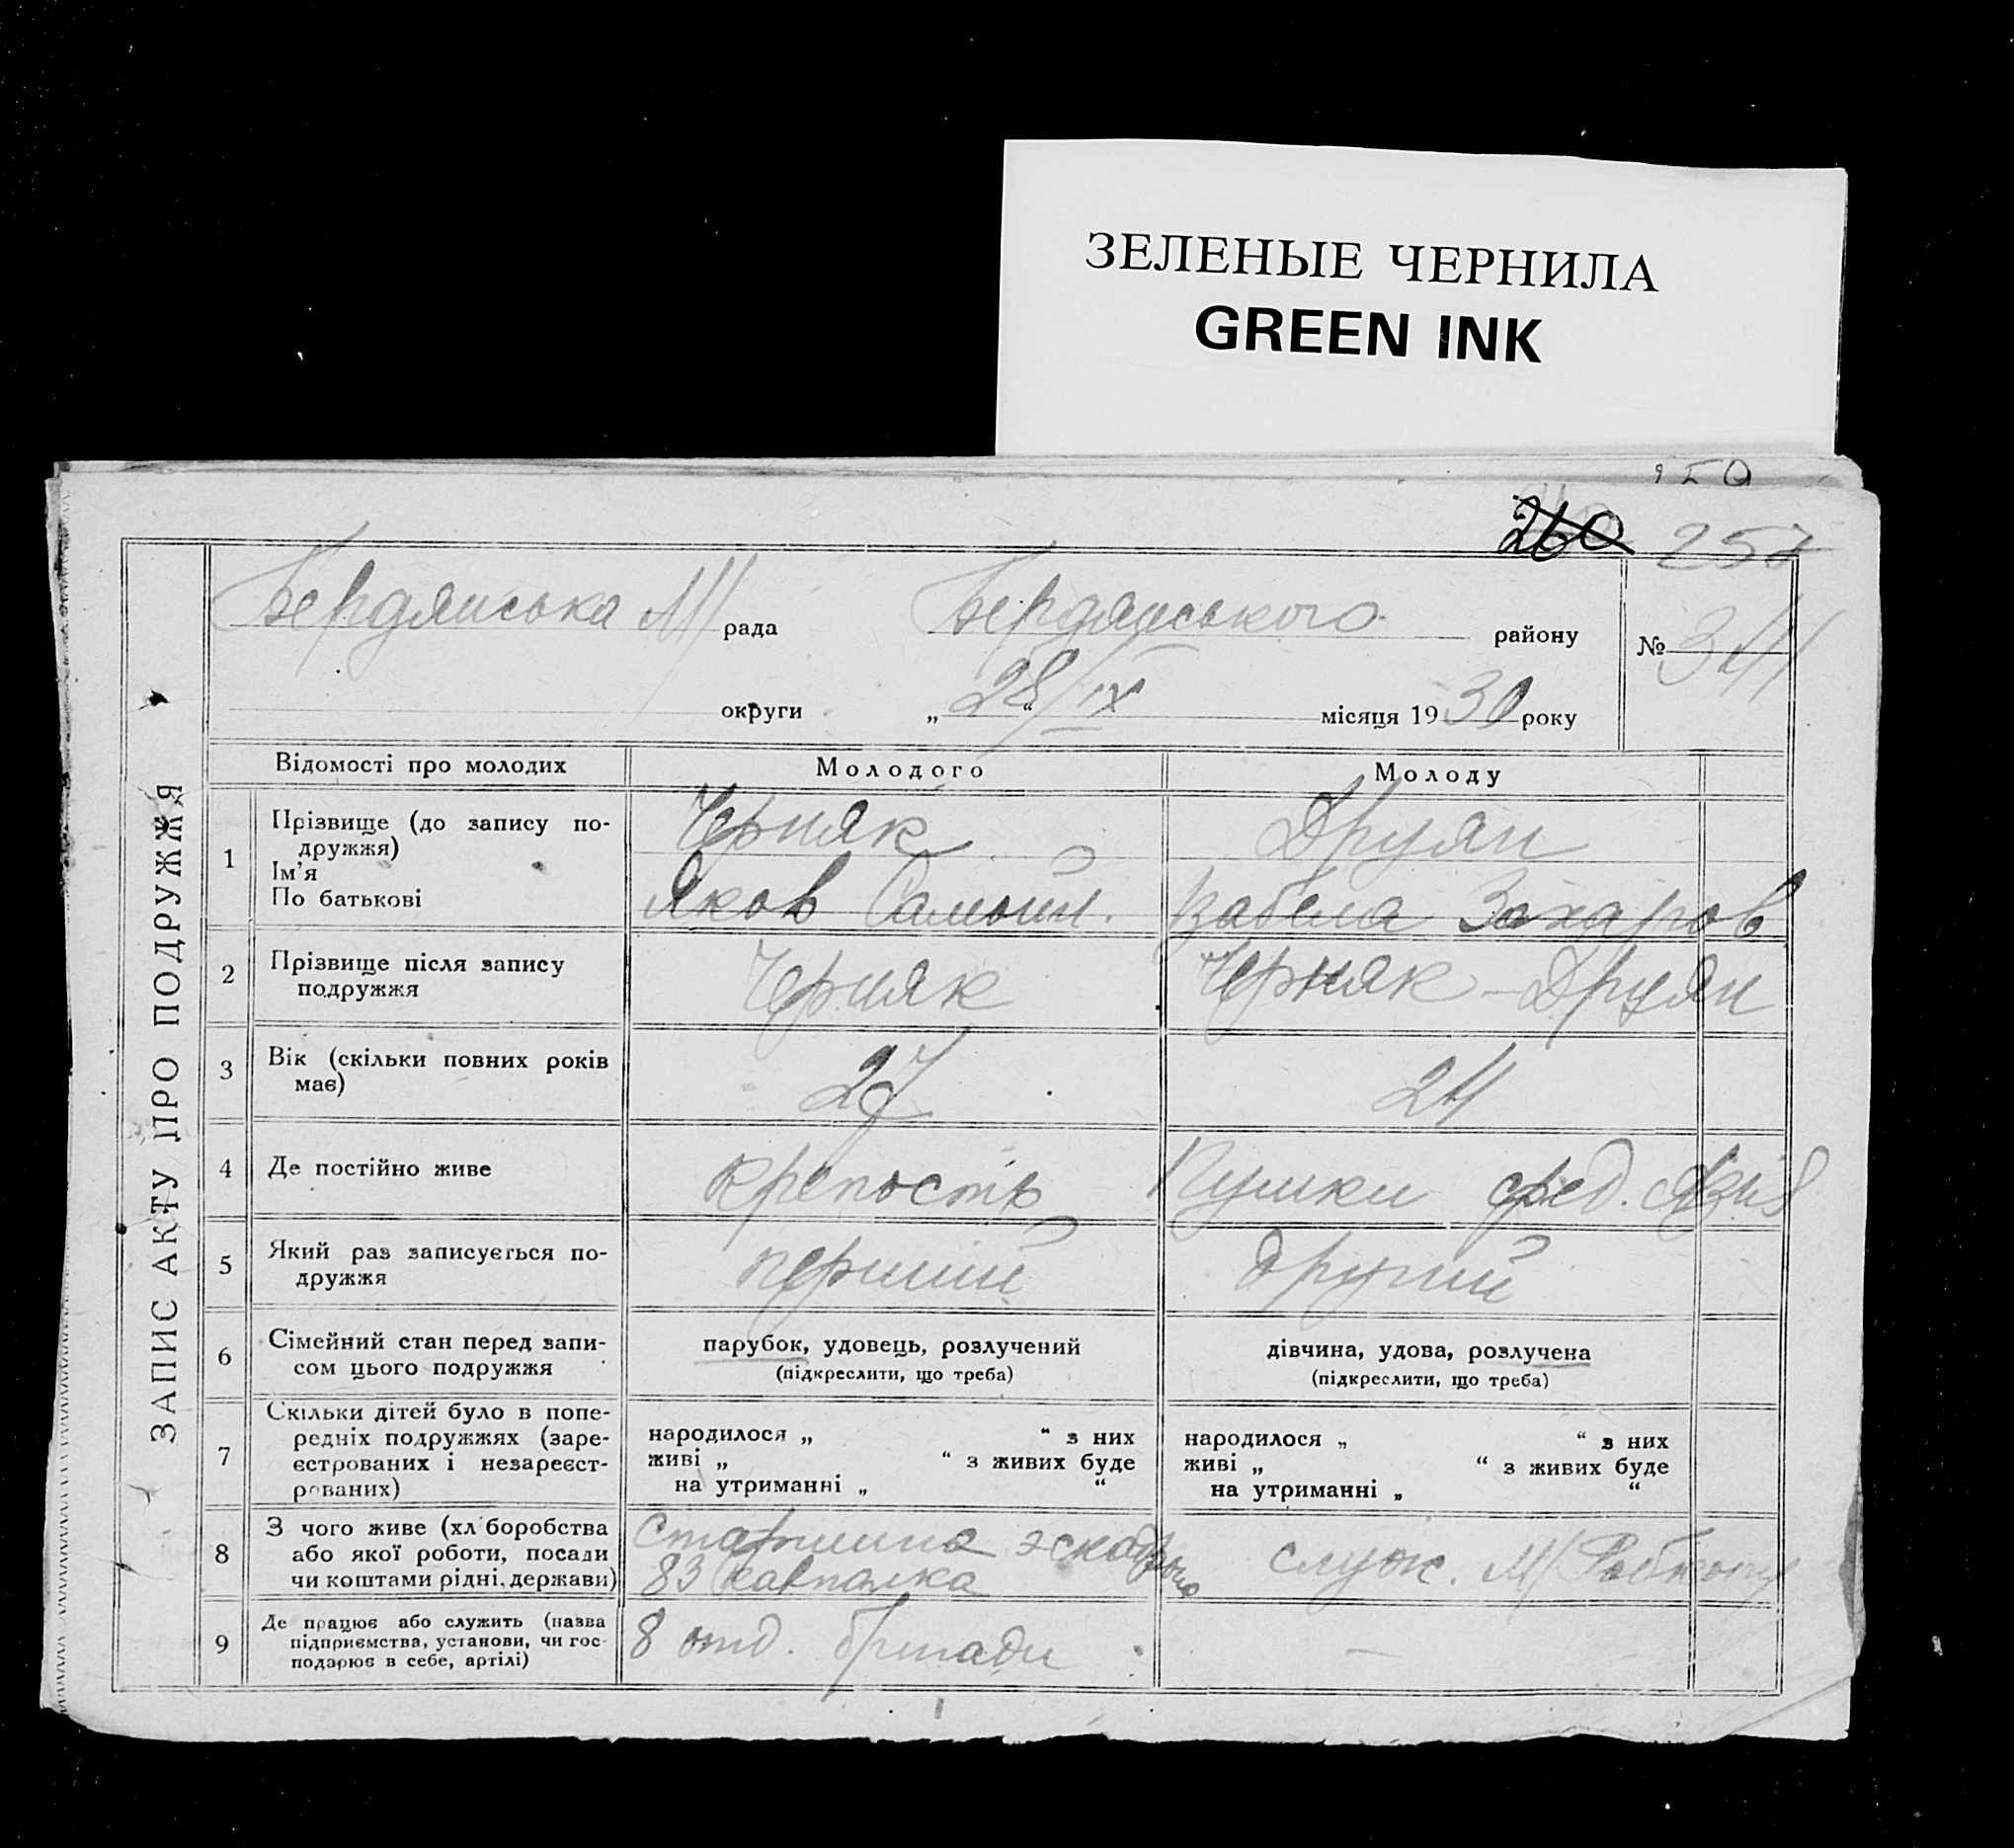 ЗЕЛЕНЫЕ ЧЕРНИЛА
GREEN INK
260 257
ЗАПИС АКТУ ПРО ПОДРУЖЖЯ
Бердянська М/рада Бердянського району
№ 341
округи „28/IX“ місяця 1930 року
Відомості про молодих Молодого Молоду
1 Прізвище (до запису по-
дружжя)
Ім'я
По батькові
Черняк
Яков Самойл.
Друян
Изабела Захаров
2 Прізвище після запису
подружжя
Черняк
Черняк-Друян
3 Вік (скільки повних років
має)
27
24
4 Де постійно живе
крепость
сред. Азія
5 Який раз записується по-
дружжя
перший
другий
6 Сімейний стан перед запи-
сом цього подружжя
парубок, удовець, розлучений
(підкреслити, що треба)
дівчина, удова, розлучена
(підкреслити, що треба)
7 Скільки дітей було в попе-
редніх подружжях (заре-
єстрованих і незареєст-
рованих)
народилося „ “ з них
живі „ “ з живих буде
на утриманні „ “
народилося „ “ з них
живі „ “ з живих буде
на утриманні „ “
8 З чого живе (хліборобства
або якої роботи, посади
чи коштами рідні, держави)
Старшина эскадрона
83 кавполка
служ. М/
9 Де працює або служить (назва
підприємства, установи, чи гос-
подарює в себе, артілі)
8 отд. бригади
—